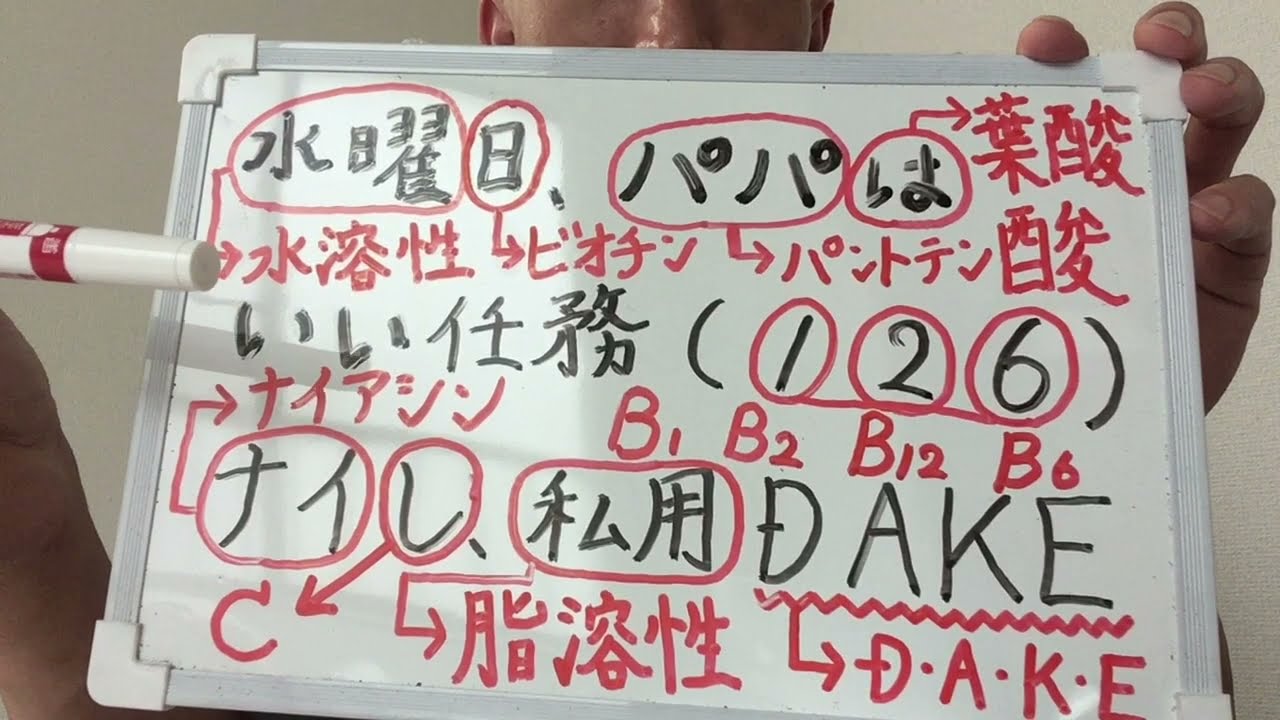 水曜日、パパは→葉酸
→水溶性 →ビオチン →パントテン酸
いい任務(126)
→ナイアシン B1 B2 B12 B6
ナイし、私用DAKE
C →脂溶性 →D・A・K・E